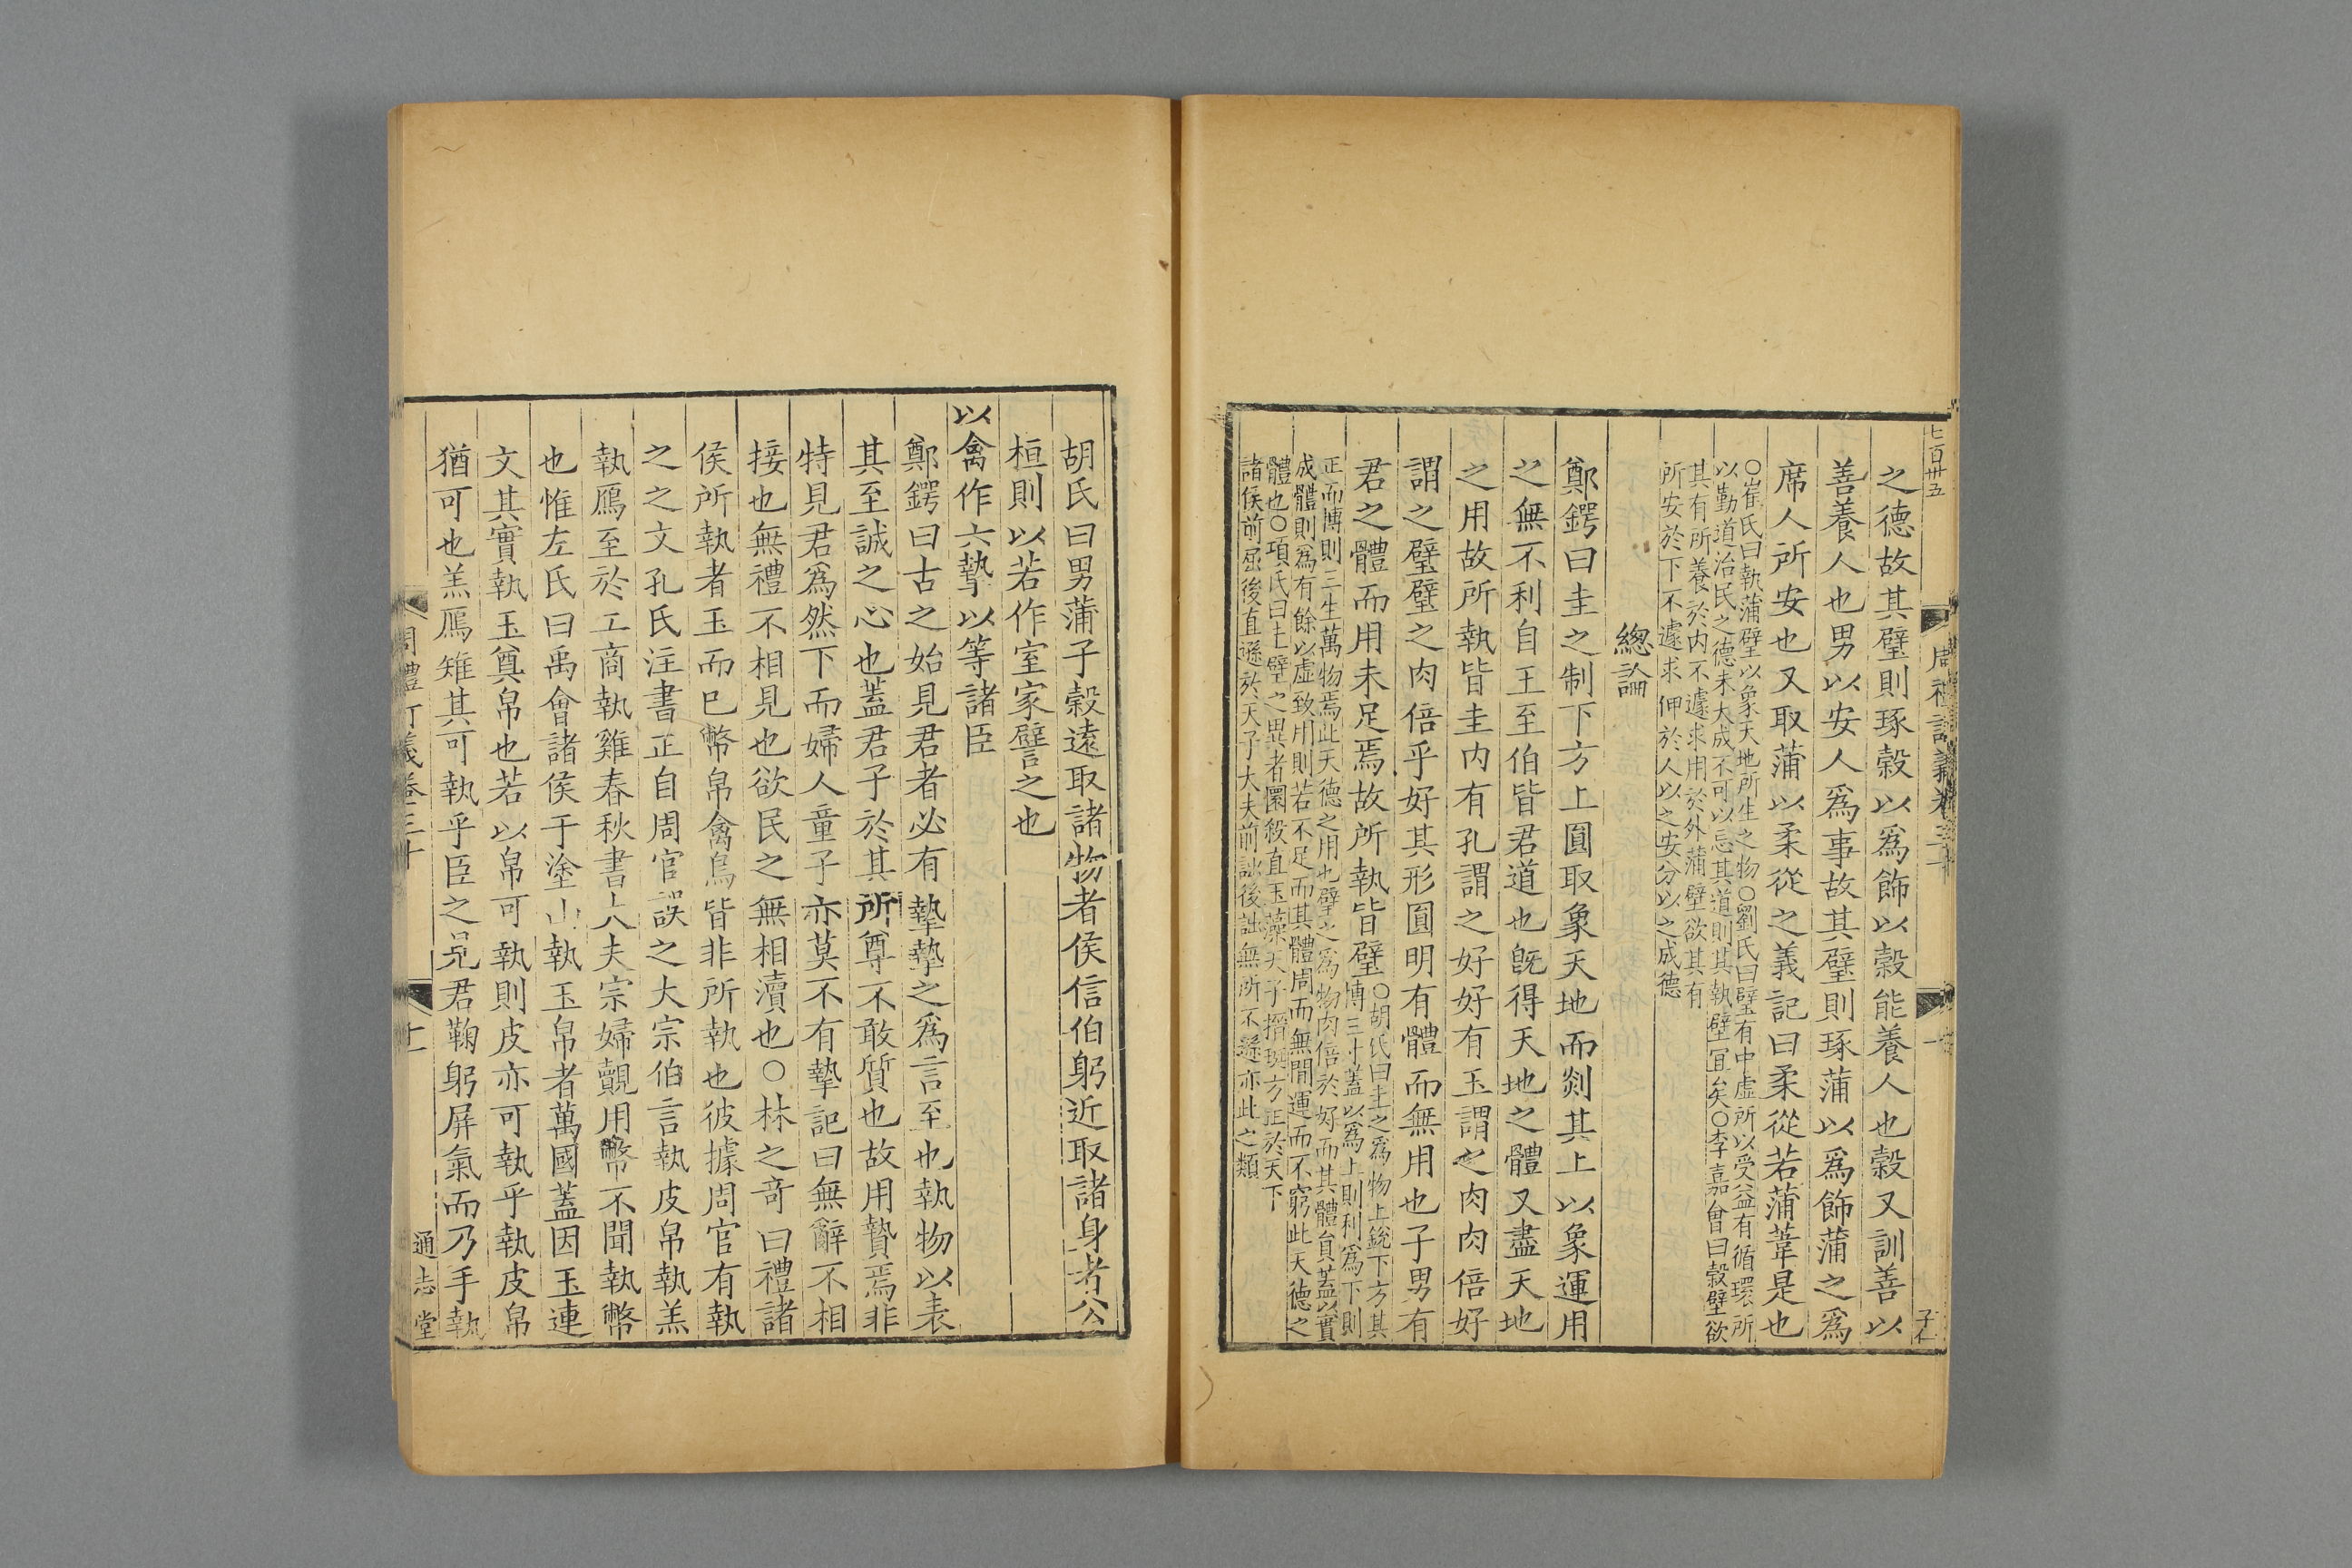 七百卅五
之德故其璧則琢穀以爲飾以穀能養人也穀又訓善以
善養人也男以安人爲事故其璧則琢蒲以爲飾蒲之爲
席人所安也又取蒲以柔從之義記曰柔從若蒲葦是也
○崔氏曰執蒲璧以象天地所生之物○劉氏曰璧有中虛所以受益有循環所
以勤道治民之德未大成不可以忘其道則其執璧冝矣○李嘉會曰穀璧欲
其有所養於内不遽求用於外蒲璧欲其有
所安於下不遽求伸於人以之安分以之成德
總論
鄭鍔曰圭之制下方上圓取象天地而剡其上以象運用
之無不利自王至伯皆君道也旣得天地之體又盡天地
之用故所執皆圭内有孔謂之好好有玉謂之肉肉倍好
謂之璧璧之肉倍乎好其形圓明有體而無用也子男有
君之體而用未足焉故所執皆璧○胡氏曰圭之爲物上銳下方其
博三寸蓋以爲上則利爲下則
正而博則三生萬物焉此天德之用也璧之爲物肉倍於好而其體負蓋以實
成體則爲有餘以虛致用則若不足而其體周而無間運而不窮此天德之
體也○項氏曰土璧之異者圜殺直玉藻天子搢珽方正於天下
諸侯前屈後直遜於天子大夫前詘後詘無所不遜亦此之類
子仁
胡氏曰男蒲子穀遠取諸物者侯信伯躬近取諸身者公
桓則以若作室家譬之也
以禽作六摯以等諸臣
鄭鍔曰古之始見君者必有摯摯之爲言至也執物以表
其至誠之心也蓋君子於其所尊不敢質也故用贄焉非
特見君爲然下而婦人童子亦莫不有摯記曰無辭不相
接也無禮不相見也欲民之無相瀆也○林之奇曰禮諸
侯所執者玉而巳幣帛禽鳥皆非所執也彼據周官有執
之之文孔氏注書正自周官誤之大宗伯言執皮帛執羔
執鴈至於工商執雞春秋書大夫宗婦覿用幣不聞執幣
也惟左氏曰禹會諸侯于塗山執玉帛者萬國蓋因玉連
文其實執玉奠帛也若以帛可執則皮亦可執乎執皮帛
猶可也羔鴈雉其可執乎臣之見君鞠躬屏氣而乃手執
周禮訂義卷三十
十一
通志堂